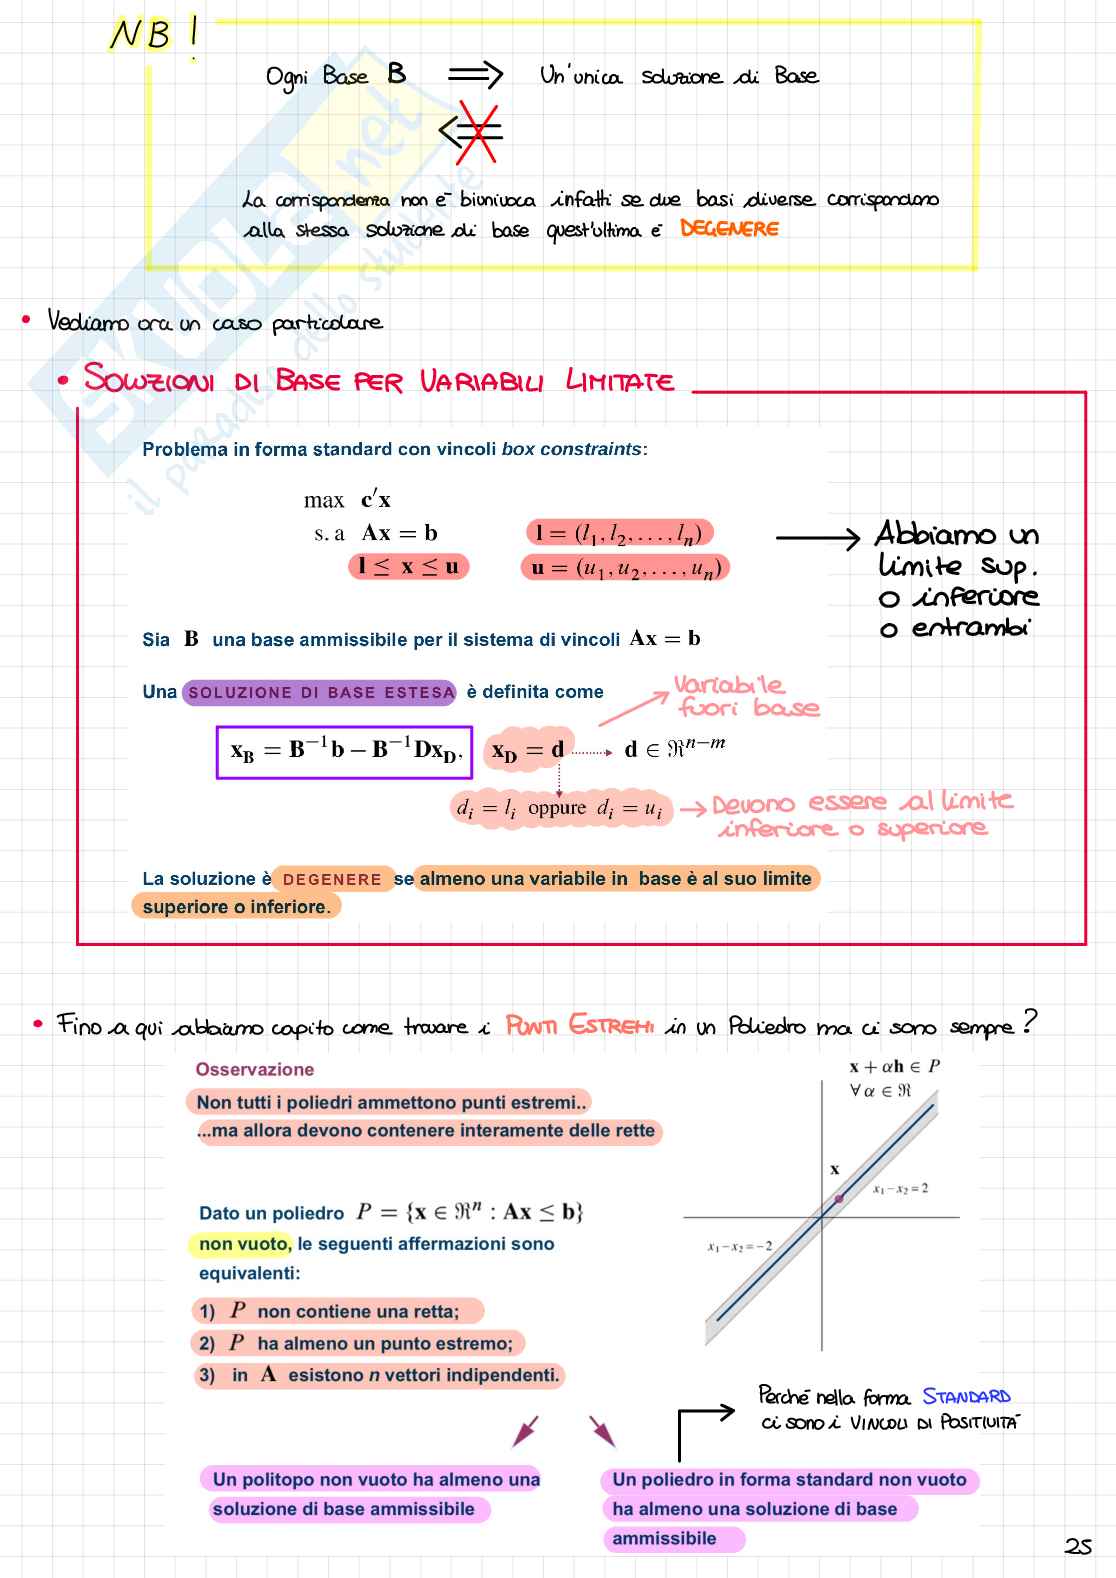 NB!
Ogni Base B ⟹ Un'unica soluzione di Base
⟸
La corrispondenza non è biunivoca infatti se due basi diverse corrispondono
alla stessa soluzione di base quest'ultima è DEGENERE
• Vediamo ora un caso particolare
• SOLUZIONI DI BASE PER VARIABILI LIMITATE
Problema in forma standard con vincoli box constraints:
max c′x
s. a Ax = b
l ≤ x ≤ u
l = (l₁, l₂, . . . , lₙ)
u = (u₁, u₂, . . . , uₙ)
Abbiamo un
limite sup.
o inferiore
o entrambi
Sia B una base ammissibile per il sistema di vincoli Ax = b
Una SOLUZIONE DI BASE ESTESA è definita come
Variabile
fuori base
x_B = B⁻¹b – B⁻¹Dx_D, x_D = d d ∈ ℜⁿ⁻ᵐ
dᵢ = lᵢ oppure dᵢ = uᵢ
Devono essere al limite
inferiore o superiore
La soluzione è DEGENERE se almeno una variabile in base è al suo limite
superiore o inferiore.
• Fino a qui abbiamo capito come trovare i PUNTI ESTREMI in un Poliedro ma ci sono sempre?
Osservazione
Non tutti i poliedri ammettono punti estremi..
...ma allora devono contenere interamente delle rette
x + αh ∈ P
∀ α ∈ ℜ
x
x₁ – x₂ = 2
x₁ – x₂ = – 2
Dato un poliedro P = {x ∈ ℜⁿ : Ax ≤ b}
non vuoto, le seguenti affermazioni sono
equivalenti:
1) P non contiene una retta;
2) P ha almeno un punto estremo;
3) in A esistono n vettori indipendenti.
Perché nella forma STANDARD
ci sono i VINCOLI DI POSITIVITÀ
Un politopo non vuoto ha almeno una
soluzione di base ammissibile
Un poliedro in forma standard non vuoto
ha almeno una soluzione di base
ammissibile
25
SKUOLA.net
il paradiso dello studente